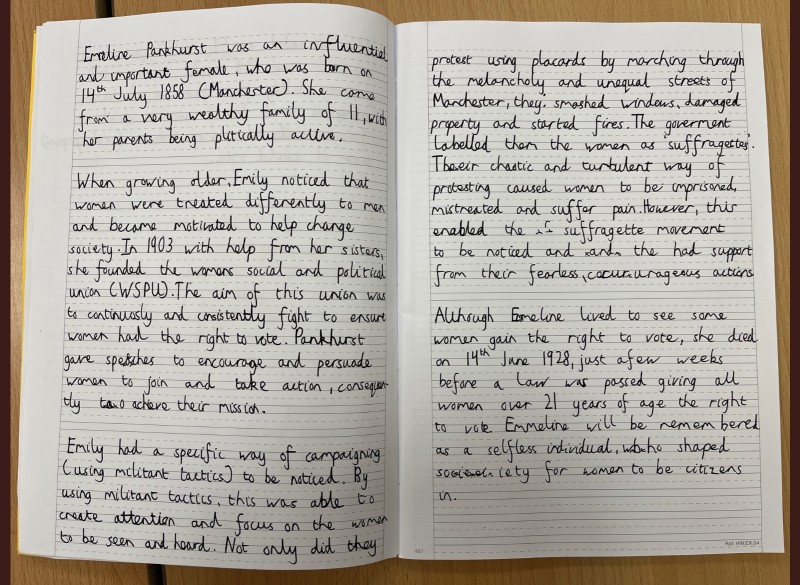 Emeline Pankhurst was an influential
and important female, who was born on
14th July 1858 (Manchester). She came
from a very wealthy family of 11, with
her parents being plitically active.
When growing older, Emily noticed that
women were treated differently to men
and became motivated to help change
society. In 1903 with help from her sisters,
she founded the womens social and political
union (WSPU). The aim of this union was
to continuosly and consistently fight to ensure
women had the right to vote. Pankhurst
gave speeches to encourage and persuade
women to join and take action, consequen
tly to achieve their mission.
Emily had a specific way of campaigning
(using militant tactics) to be noticed. By
using militant tactics, this was able to
create attention and focus on the women
to be seen and heard. Not only did they
protest using placards by marching through
the melancholy and unequal streets of
Manchester, they smashed windows, damaged
property and started fires. The goverment
labelled them the women as 'suffragettes'.
Their chaotic and turbulent way of
protesting caused women to be imprisoned,
mistreated and suffer pain. However, this
enabled the suffragette movement
to be noticed and the had support
from their fearless, courageous actions
Although Emeline lived to see some
women gain the right to vote, she died
on 14th June 1928, just a few weeks
before a law was passed giving all
women over 21 years of age the right
to vote Emmeline will be remembered
as a selfless individual, who shaped
society for women to be citizens
in.
Ref: HW.EX.04